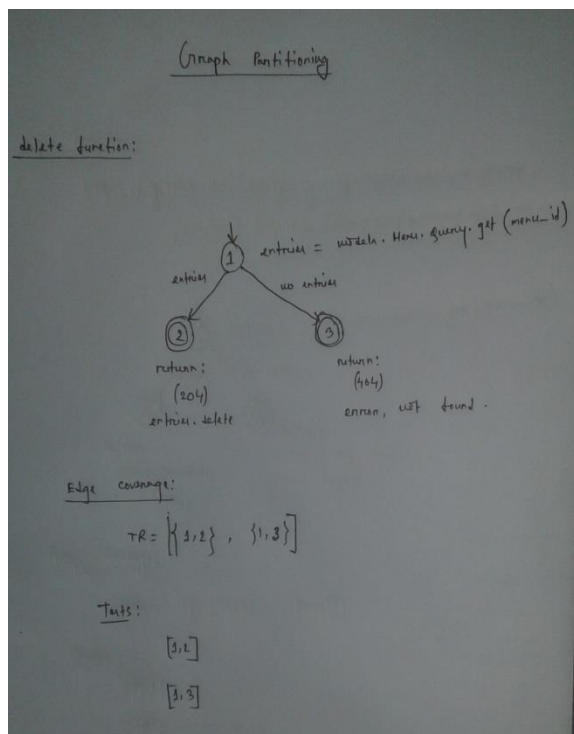 Graph Partitioning
delete function:
1 entries = models. Menu. Query. get (menu_id)
entries no entries
2 3
return: return:
(204) (404)
entries. delete error, not found.
Edge coverage:
TR = [{1,2} , {1,3}]
Tests:
[1,2]
[1,3]